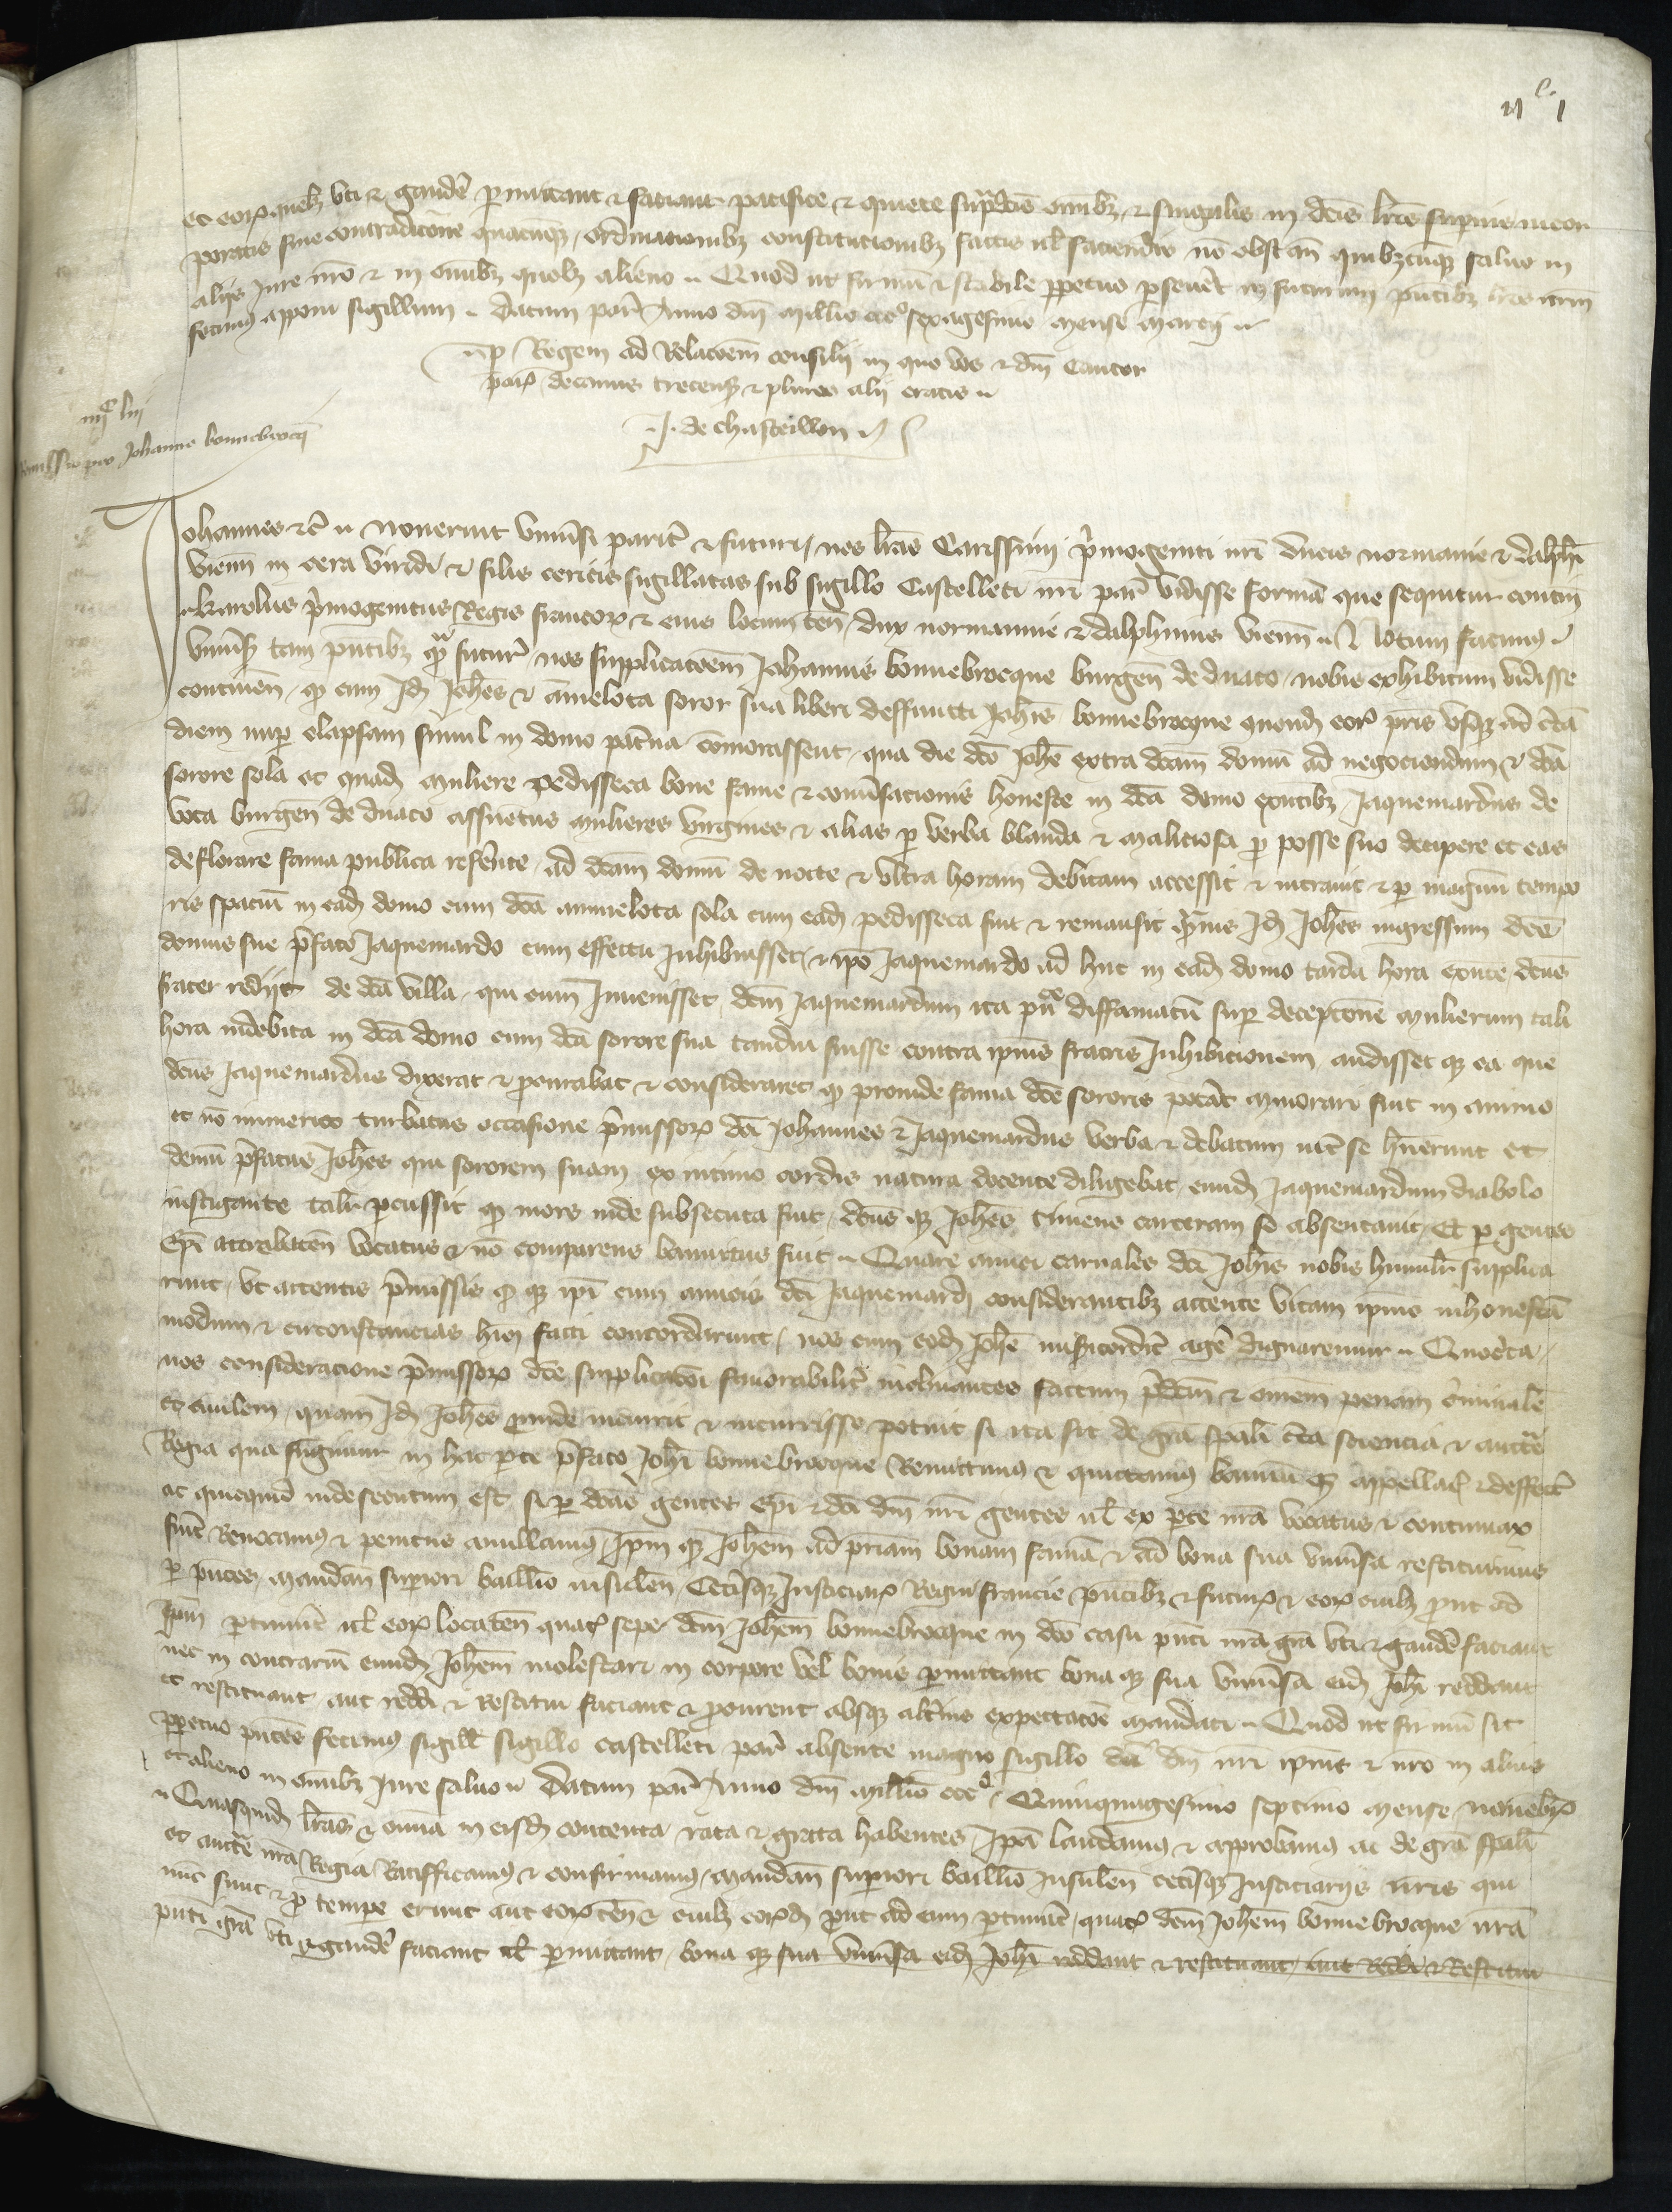 ijᶜ j
et eorum quelibet uti et gaudere permittant et faciant pacifice et quiete supradictis omnibus et singulis in dictis litteris superius incor
poratis sine contradictione quacumque, ordinationibus constitutionibus factis vel faciendis non obstantibus quibuscumque salvo in
aliis Jure nostro et in omnibus quolibet alieno. Quod ut firmum et stabile perpetuo perseveret in futurum presentibus litteris nostrum
fecimus apponi sigillum. Datum parisius Anno domini Millesimo cccᵒ sexagesimo Mense Marcij.
per Regem ad Relacionem consilii in quo vos et domini Cantor
parisiensis decanus trecensis et plures alii eratis.
J. de Chasteillon
iiijᶜ liij
Remissio pro Johanne bonnebrocq
Johannes etc. Noverint Universi pariter et futuri, nos litteras Carissimi primogeniti nostri ducis normanie et dalphini
viennensis in cera viridi et filis cericis sigillatas sub sigillo Castelleti nostri parisiensis vidisse formam que sequitur continentes
Karolus primogenitus Regis francorum et eius locum tenens dux normannie et dalphinus viennensis. Notum facimus
Universis tam presentibus quam futuris, nos supplicacionem Johannis bonnebrocque burgensis de duaco, nobis exhibitam vidisse
continentem, quod cum Idem Johannes et amelota soror sua liberi deffuncti Johannis bonnebrocque quondam eorum patris usque ad certam
diem nuper elapsam simul in domo paterna commorassent, qua die dicto Johanne extra dictam domum ad negociandum et dicta
sorore sola et quadam muliere pedisseca bone fame et conversacionis honeste in dicta domo existentibus, Jaquemardus de
voca burgensis de duaco assuetus mulieres virgines et alias per verba blanda et maliciosa pro posse suo decipere et eas
deflorare fama publica referente, ad dictam domum de nocte et ultra horam debitam accessit et intravit et per magnum tempo
ris spacium in eadem domo cum dicta amelota sola cum eadem pedisseca fuit et remansit quamvis Idem Johannes ingressum dicte
domus sue prefato Jaquemardo cum effectu Inhibuisset, et ipso Jaquemardo ad huc in eadem domo tarda hora existente dictus
frater rediit de dicta villa, qui cum Invenisset dictum Jaquemardum ita publice diffamatum super deceptione mulierum tali
hora indebita in dicta domo cum dicta sorore sua tamdiu fuisse contra ipsius fratris Inhibicionem, audisset que ea que
dictus Jaquemardus dixerat et procurabat et consideraret quod proinde fama dicte sororis poterat minorari fuit in animo
et non immerito turbatus occasione premissorum dicti Johannes et Jaquemardus verba et debatum inter se habuerunt et
demum prefatus Johannes qui sororem suam ex intimo cordis natura docente diligebat, eundem Jaquemardum diabolo
instigante taliter percussit quod mors inde subsecuta fuit, dictus que Johannes timens carcerem se absentavit, Et per gentes
Episcopi attrebatensis vocatus et non comparens bannitus fuit. Quare amici carnales dicti Johannis nobis humiliter supplica
runt, ut attentis premissis et quod ipsi cum amicis dicti Jaquemardi considerantibus attente vitam ipsius inhonestam
modum et circonstancias huius facti concordarunt, nos cum eodem Johanne misericorditer agere dignaremur. Quocirca,
nos consideracione premissorum dicte supplicacioni favorabiliter inclinantes factum predictum et omnem penam criminalem
et civilem, quam Idem Johannes proinde incurrit et incurrisse potuit si ita sit de gracia speciali certa sciencia et auctoritate
Regia qua fungimur in hac parte prefato Johanni bonnebrocque Remittimus et quittamus bannum que appellaciones et deffectus
ac quicquid inde secutum est, si per dictas gentes episcopi et dicti domini nostri gentes vel ex parte nostra vocatus et contumax
fuit Revocamus et penitus anullamus, Ipsum que Johannem ad patriam bonam famam et ad bona sua universa restituimus
per presentes, mandantes superiori baillivo insulensi, Ceterisque Justiciariis Regni francie presentibus et futuris et eorum cuilibet prout ad
Ipsum pertinuerit vel eorum locatenentibus quatinus sepe dictum Johannem bonnebrocque in dicto casu presenti nostra gracia uti et gaudere faciant
nec in contrarium eundem Johannem molestari in corpore vel bonis permittant bona que sua universa eidem Johanni reddant
et restituant, aut reddi et Restitui faciant et procurent absque alterius expectacione mandati. Quod ut firmum sit
perpetuo presentes fecimus sigillari sigillo castelleti parisiensis absente magno sigillo dicti domini nostri ipsius et nostro in aliis
et alieno in omnibus Jure salvo. Datum parisius Anno domini Millesimo cccᵒ Quinquagesimo septimo Mense, novembris
Quasquidem litteras et omnia in eisdem contenta rata et grata habentes, Ipsa laudamus et approbamus ac de gracia speciali
et auctoritate nostra Regia Ratifficamus et confirmamus, Mandantes superiori baillivo Insulensi ceterisque Justiciariis nostris qui
nunc sunt et pro tempore erunt aut eorum locatenentibus et cuilibet eorumdem prout ad eum pertinuerit, quatinus dictum Johannem bonnebrocque nostra
presenti gracia uti et gaudere faciant vel permittant, bona que sua universa eidem Johanni reddant et restituant, aut Reddi et Restitui